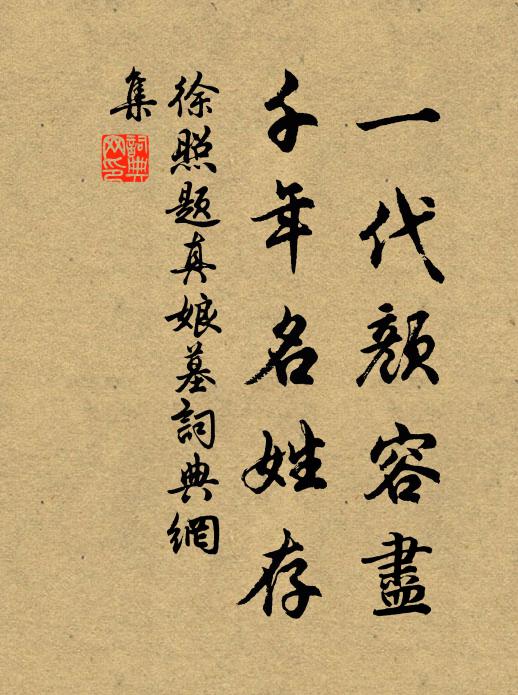 一代顏容盡
千年名姓存
徐照題真娘墓詞典網
集
詞典
网印